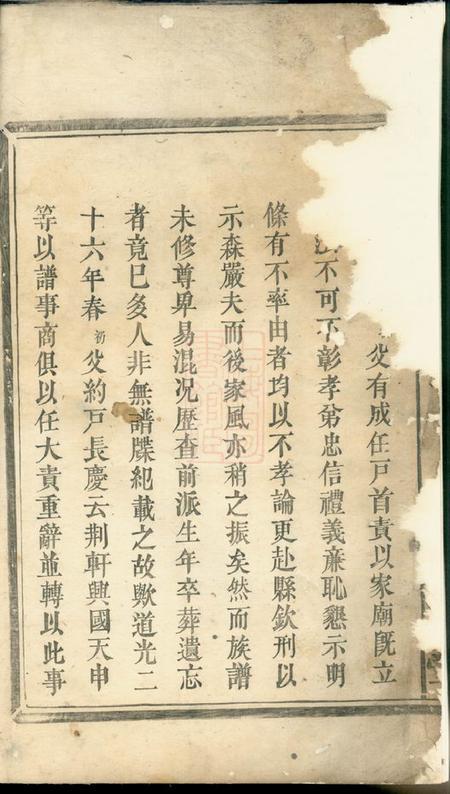 父有成任戸首責以家廟既立
不可不彰孝弟忠信禮義廉恥懇示明
條有不率由者均以不孝論更赴縣欽刑以
示森嚴夫而後家風亦稍之振矣然而族譜
未修尊卑易混况歴查前派生年卒葬遺忘
者竟已多人非無譜牒紀載之故歟道光二
十六年春初父約戸長慶云荆軒興國天申
等以譜事商俱以任大責重辭並轉以此事